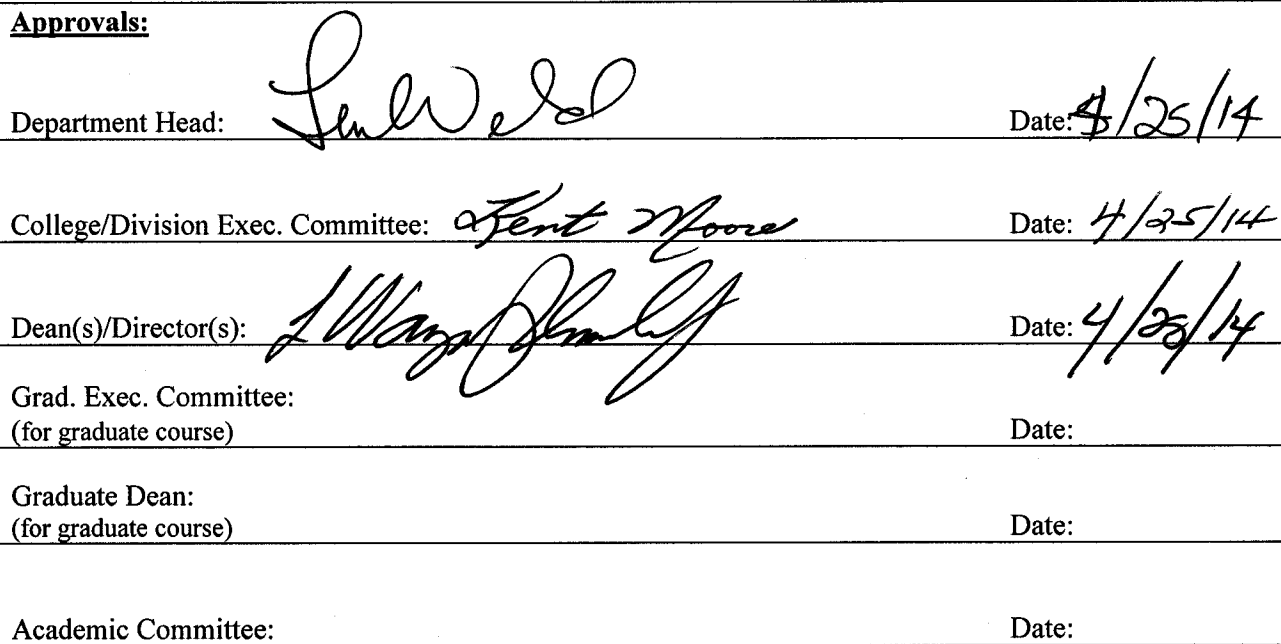 Approvals:
Department Head: Date: 4/25/14
College/Division Exec. Committee: Kent Moore Date: 4/25/14
Dean(s)/Director(s): Date: 4/ /14
Grad. Exec. Committee:
(for graduate course) Date:
Graduate Dean:
(for graduate course) Date:
Academic Committee: Date: